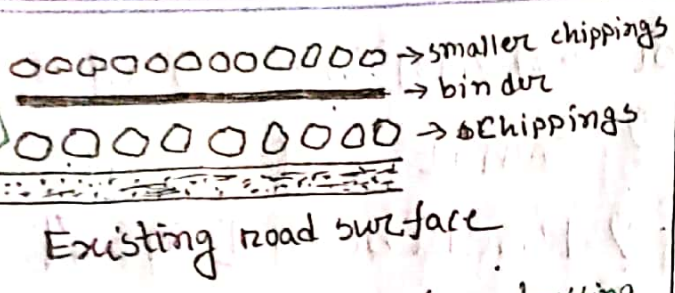 → smaller chippings
→ binder
→ Chippings
Existing road surface